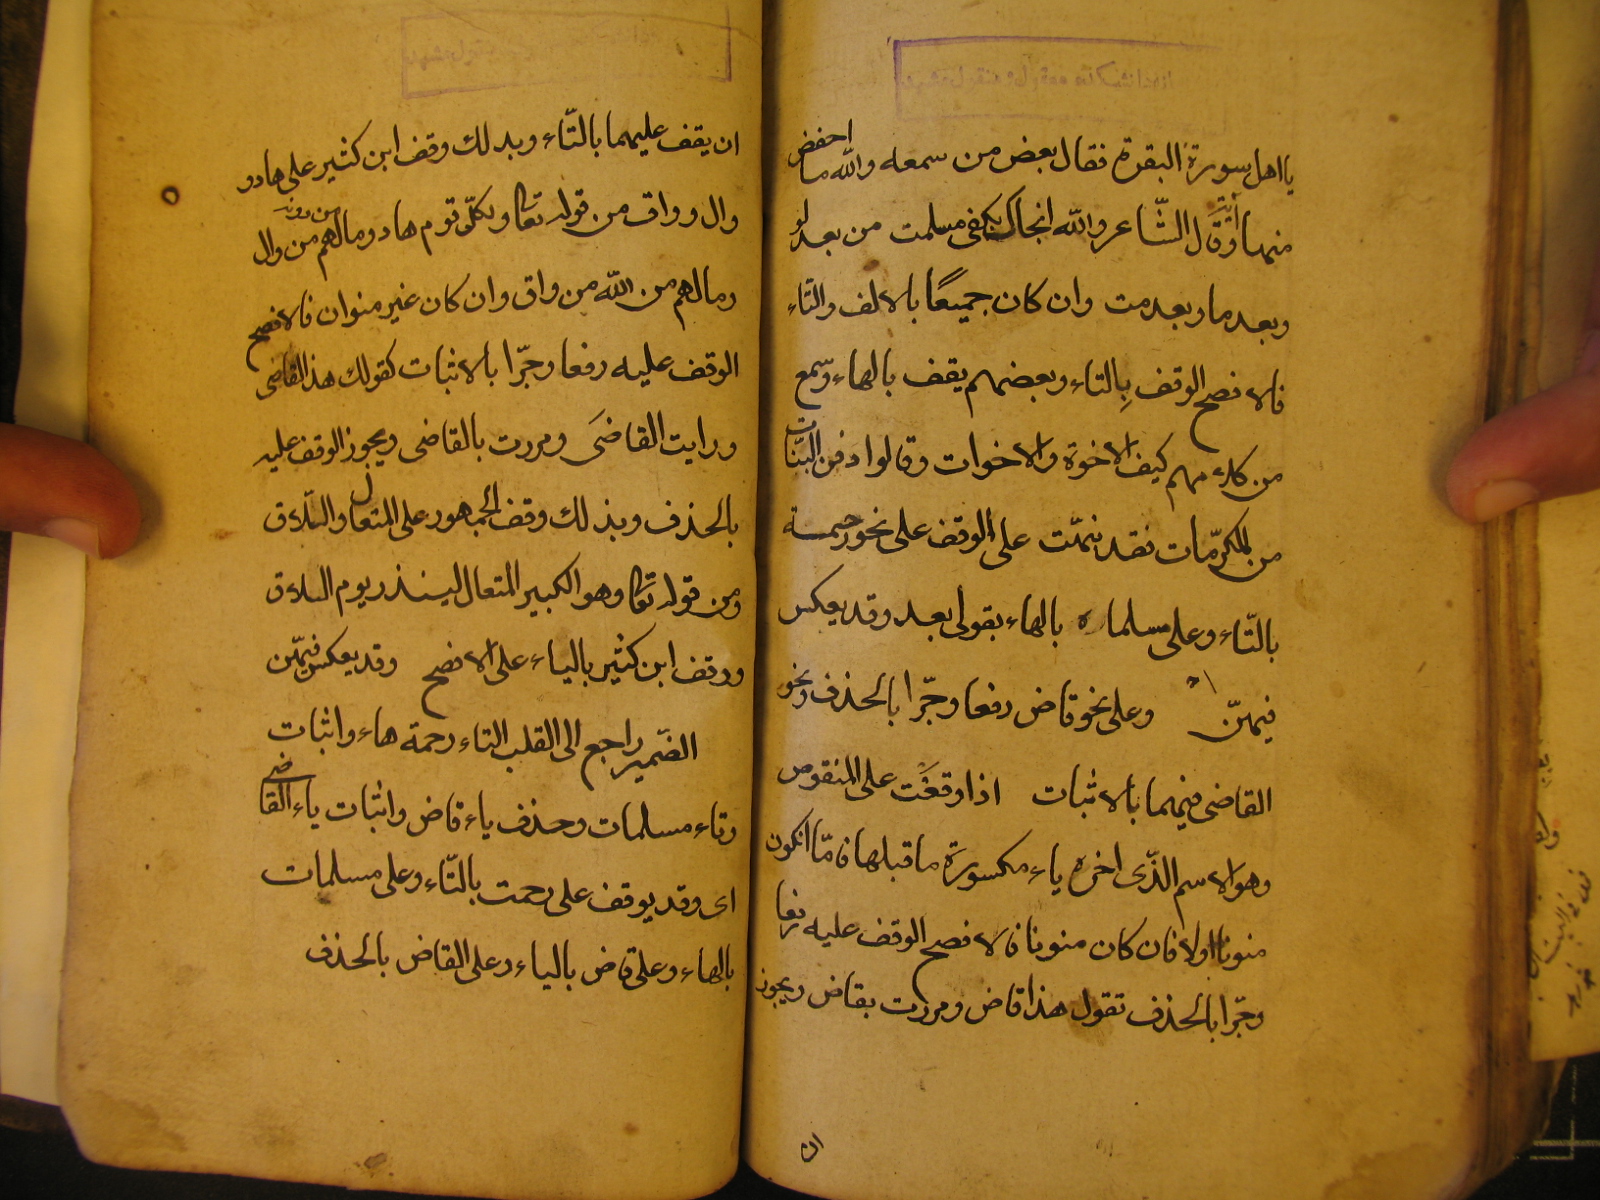 يا اهل سورة البقرة فقال بعض من سمعه والله ما احفض
منها آية وقال الشاعر والله انجاك بكفى مسلمت من بعد لو
وبعد ما وبعد مت وان كان جميعًا بالالف والتّاء
فالافصح الوقف بِالتاء وبعضهم يقف بالهاء وسمع
من كلامهم كيف الاخوة والاخوات وقالوا دفن البنات
من المكرّمات فقد نبهت على الوقف على نحو رحمة
بالتّاء وعلى مسلماه بالهاء بقولى بعد وقد يعكس
فيهنّ وعلى نحو قاض رفعا وجّرا بالحذف ونحو
القاضى فيهما بالاثبات اذا وقفت على المنقوص
وهو الاسم الذّى اخره ياء مكسورة ما قبلها فامّا انكون
منونا اولا فان كان منونا فالافصح الوقف عليه رفعا
وجّرا بالحذف تقول هذا قاض ومررت بقاض ويجوز
ان
ان يقف عليهما بالتّاء وبذلك وقف ابن كثير على هاد و
وال وواق من قوله تعا ولكلّ قوم هاد ومالهم من دونه من وال
ومالهم من اللّه من واق وان كان غير منوان فالافصح
الوقف عليه رفعا وجّرا بالاثبات كقولك هذ القاضى
ورايت القاضىَ ومررت بالقاضى ويجوز الوقف عليه
بالحذف وبذلك وقف الجمهور على المتعال والتلاق
ومن قوله تعا وهو الكبير المتعال لينذر يوم التلاق
ووقف ابن كثير بالياء على الافصح وقد يعكس فيهّن
الضّمير راجع الى القلب التاء رحمة هاء واثبات
وتاء مسلمات وحذف ياء قاض واثبات ياء القاضى
اى وقد يوقف على رحمت بالتّاء وعلى مسلمات
بالهاء وعلى قاض بالياء وعلى القاض بالحذف